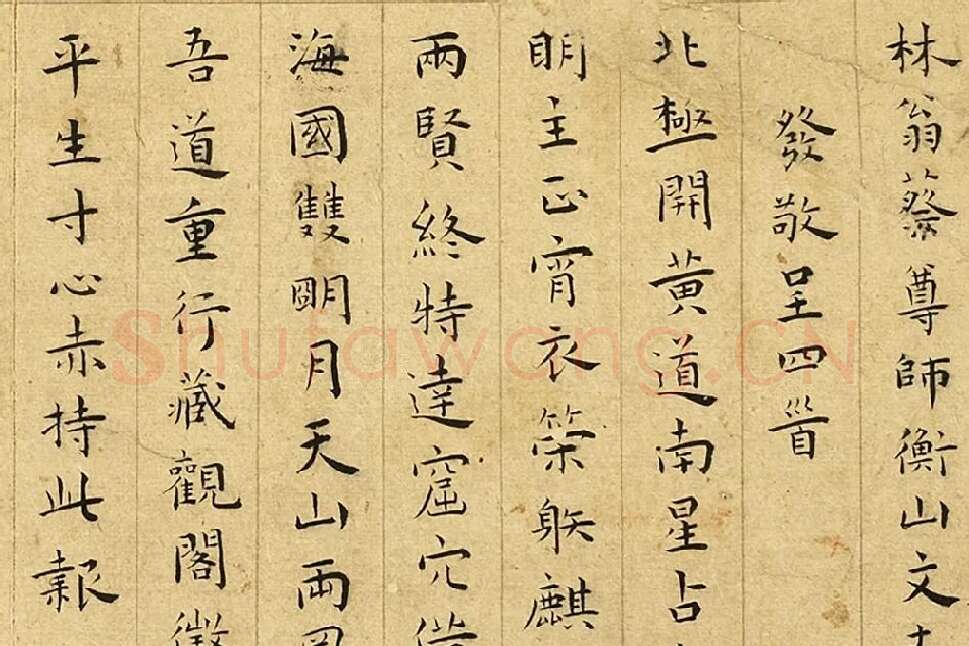 林翁蔡尊師衡山文
發敬呈四首
北極開黃道南星占
明主正宵衣䇿䠶麒
兩賢終特達窟穴
海國雙朙月天山兩
吾道重行藏觀閣
平生寸心赤持此報
Shufawang.CN